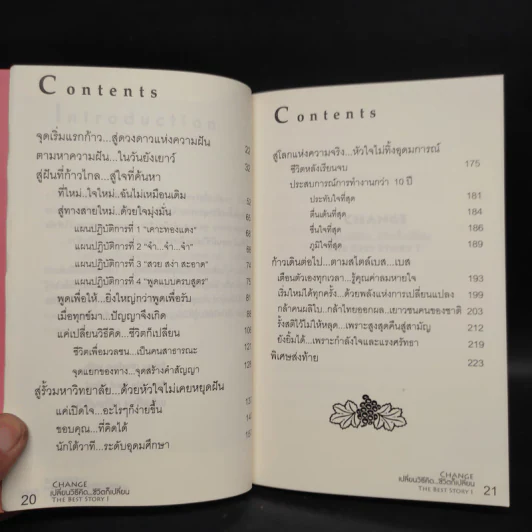 Contents
จุดเริ่มแรกก้าว...สู่ดวงดาวแห่งความฝัน 22
ตามหาความฝัน...ในวันยังเยาว์ 32
สู่ฝันที่ก้าวไกล...สู่ใจที่ค้นหา
ที่ใหม่...ใจใหม่...ฉันไม่เหมือนเดิม
สู่ทางสายใหม่...ด้วยใจมุ่งมั่น
แผนปฏิบัติการที่ 1 "เคาะทองแดง"
แผนปฏิบัติการที่ 2 "จำ...จำ...จำ"
แผนปฏิบัติการที่ 3 "สวย สง่า สะอาด"
แผนปฏิบัติการที่ 4 "พูดแบบครบสูตร"
พูดเพื่อให้...ยิ่งใหญ่กว่าพูดเพื่อรับ
เมื่อทุกข์มา...ปัญญาจึงเกิด
แค่เปลี่ยนวิธีคิด...ชีวิตก็เปลี่ยน
ชีวิตเพื่อมวลชน...เป็นคนสาธารณะ
จุดแยกของทาง...จุดสร้างคำสัญญา
สู่รั้วมหาวิทยาลัย...ด้วยหัวใจไม่เคยหยุดฝัน
แค่เปิดใจ...อะไรๆก็ง่ายขึ้น
ขอบคุณ...ที่คิดได้
นักโต้วาที...ระดับอุดมศึกษา
20
CHANGE
เปลี่ยนวิธีคิด...ชีวิตก็เปลี่ยน
THE BEST STORY I
Contents
สู่โลกแห่งความจริง...หัวใจไม่ทิ้งอุดมการณ์
ชีวิตหลังเรียนจบ 175
ประสบการณ์การทำงานกว่า 10 ปี
ประทับใจที่สุด 181
ตื่นเต้นที่สุด 184
ชื่นใจที่สุด 186
ภูมิใจที่สุด 189
ก้าวเดินต่อไป...ตามสไตล์เบส...เบส
เตือนตัวเองทุกเวลา...รู้คุณค่าลมหายใจ 193
เริ่มใหม่ได้ทุกครั้ง...ด้วยพลังแห่งการเปลี่ยนแปลง 199
กล้าคนผลิใบ...กล้าไทยออกผล...เยาวชนคนของชาติ 203
รั้งสติไว้ไม่ให้หลุด...เพราะสูงสุดคืนสู่สามัญ 212
ยังยิ้มได้...เพราะกำลังใจและแรงศรัทธา 219
พิเศษส่งท้าย 223
CHANGE
เปลี่ยนวิธีคิด...ชีวิตก็เปลี่ยน
THE BEST STORY I
21